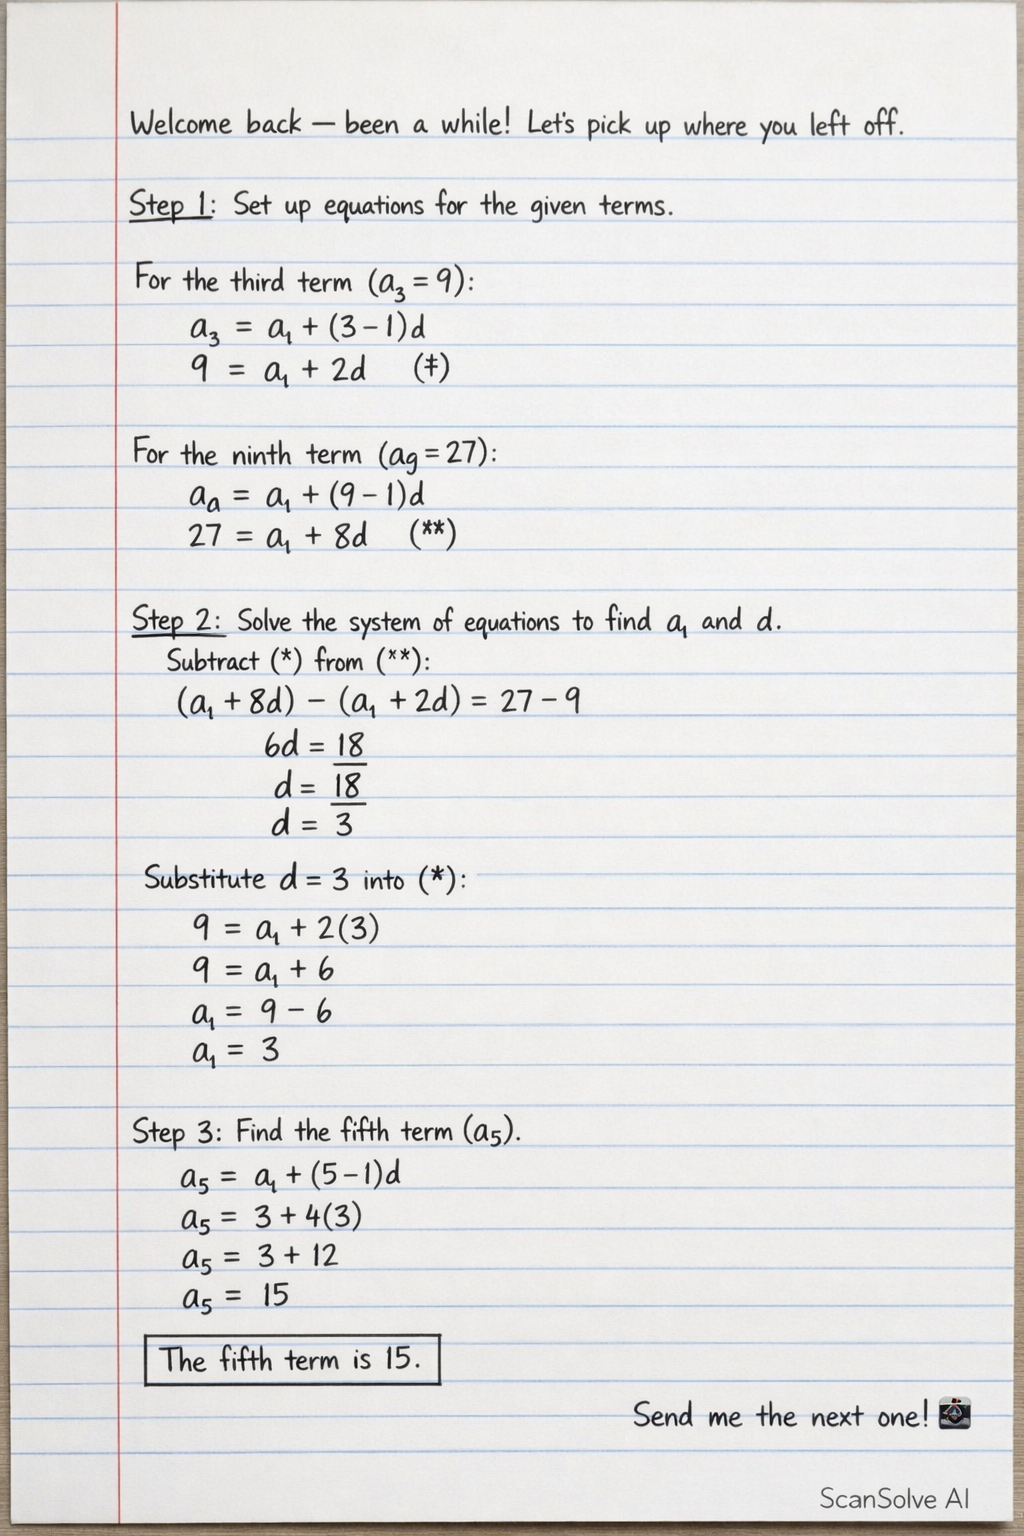 Welcome back — been a while! Let's pick up where you left off.
Step 1: Set up equations for the given terms.
For the third term (a₃ = 9):
a₃ = a₁ + (3 − 1)d
9 = a₁ + 2d (‡)
For the ninth term (ag = 27):
aₐ = a₁ + (9 − 1)d
27 = a₁ + 8d (**)
Step 2: Solve the system of equations to find a₁ and d.
Subtract (*) from (**):
(a₁ + 8d) − (a₁ + 2d) = 27 − 9
6d = 18
d = 18
d = 3
Substitute d = 3 into (*):
9 = a₁ + 2(3)
9 = a₁ + 6
a₁ = 9 − 6
a₁ = 3
Step 3: Find the fifth term (a₅).
a₅ = a₁ + (5 − 1)d
a₅ = 3 + 4(3)
a₅ = 3 + 12
a₅ = 15
The fifth term is 15.
Send me the next one!
ScanSolve AI